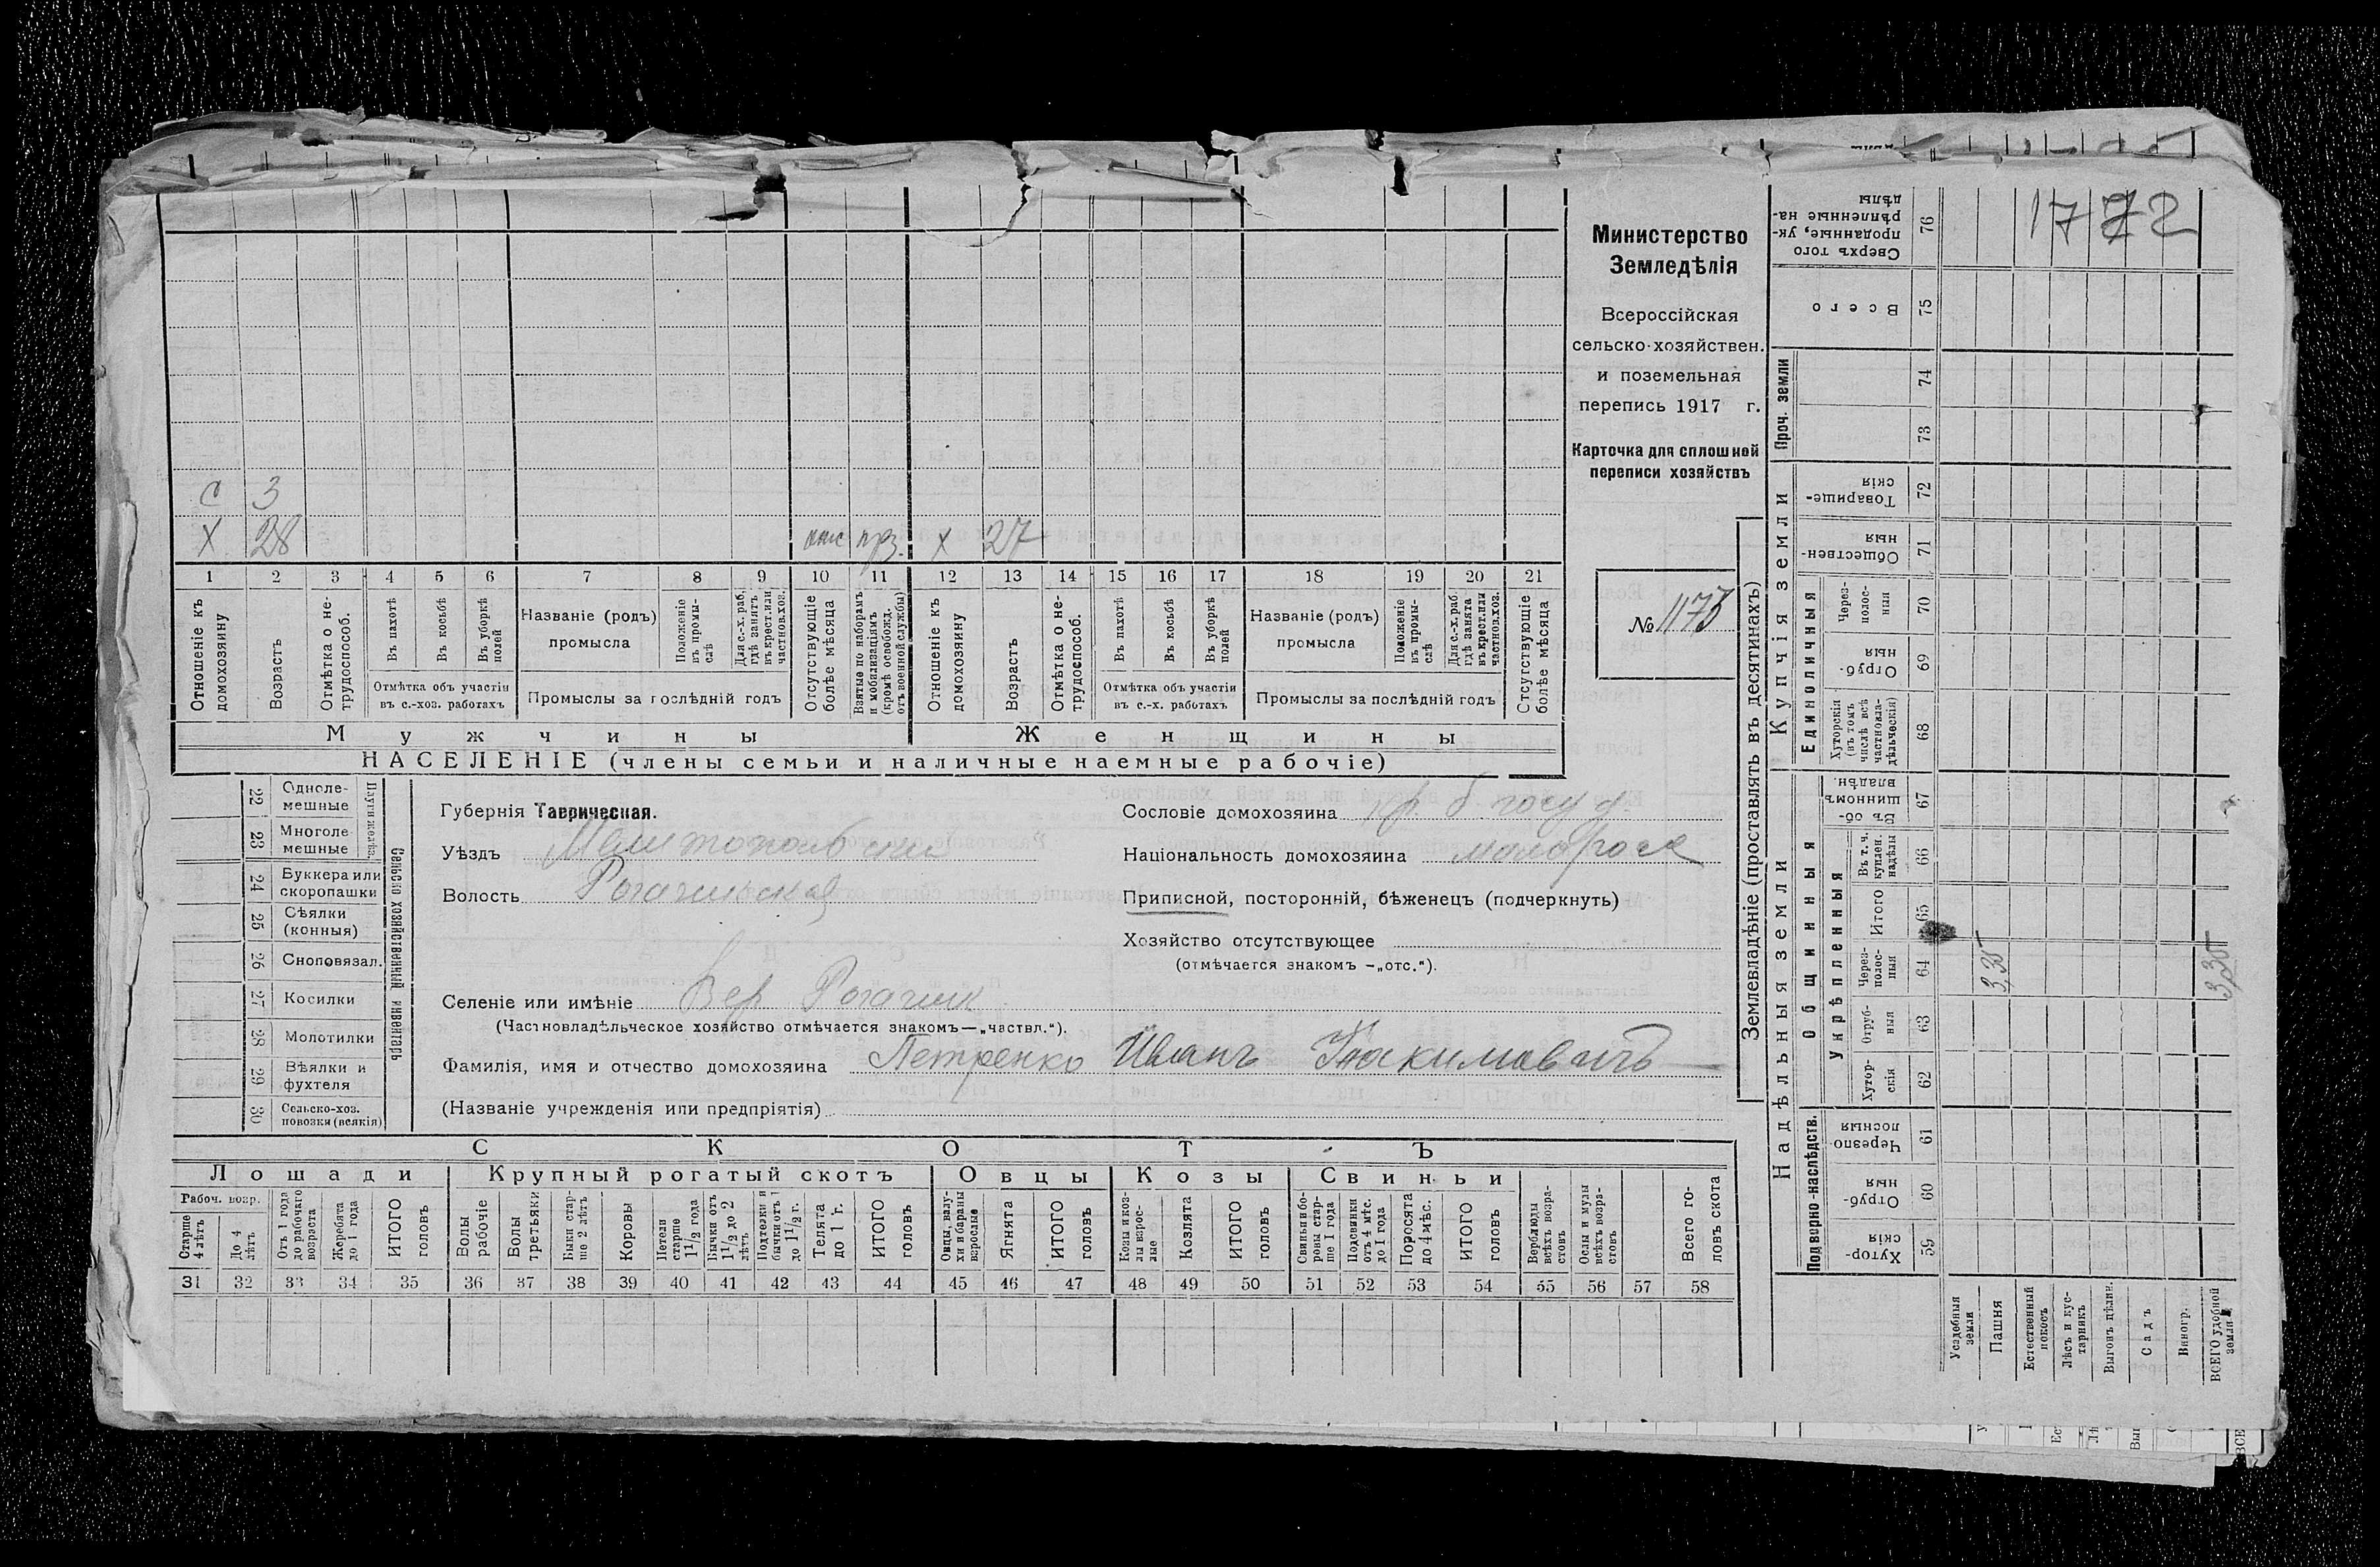 С 3
Х 28 отс прз. х 27
1 2 3 4 5 6 7 8 9 10 11 12 13 14 15 16 17 18 19 20 21
Отношеніе къ домохозяину
Возрастъ
Отмѣтка о не-трудоспособ.
Въ пахотѣ
Въ косьбѣ
Въ уборкѣ полей
Отмѣтка объ участіи
въ с.-хоз. работахъ
Названіе (родъ)
промысла
Положеніе въ промы-слѣ
Для с.-х. раб. гдѣ занятъ въ крест. или частнов. хоз.
Промыслы за послѣдній годъ
Отсутствующіе болѣе мѣсяца
Взятые по наборамъ и мобилизаціямъ (кромѣ освобожд. отъ военной службы)
Отношеніе къ домохозяину
Возрастъ
Отмѣтка о не-трудоспособ.
Въ пахотѣ
Въ косьбѣ
Въ уборкѣ полей
Отмѣтка объ участіи
въ с.-х. работахъ
Названіе (родъ)
промысла
Положеніе въ промы-слѣ
Для с.-х. раб. гдѣ занята въ крест. или частнов. хоз.
Промыслы за послѣдній годъ
Отсутствующіе болѣе мѣсяца
Мужчины Женщины
НАСЕЛЕНІЕ (члены семьи и наличные наемные рабочіе)
Министерство
Земледѣлія
Всероссійская
сельско-хозяйствен.
и поземельная
перепись 1917 г.
Карточка для сплошной
переписи хозяйствъ
№ 1173
22 Одноле-мешные
23 Многоле-мешные
Плуги желѣз.
24 Буккера или скоропашки
25 Сѣялки (конныя)
26 Сноповязал.
27 Косилки
28 Молотилки
29 Вѣялки и фухтеля
30 Сельско-хоз. повозки (всякія)
Сельско хозяйственный инвентарь
Губернія Таврическая.
Уѣздъ Мелитопольскій
Волость Рогачикская
Селеніе или имѣніе Вер Рогачик
(Частновладѣльческое хозяйство отмѣчается знакомъ—„частвл.“).
Фамилія, имя и отчество домохозяина Петренко Иванъ Іоакимовичъ
(Названіе учрежденія или предпріятія)
Сословіе домохозяина кр. б госуд
Національность домохозяина малоросс
Приписной, посторонній, бѣженецъ (подчеркнуть)
Хозяйство отсутствующее
(отмѣчается знакомъ -„отс.“).
СКОТЪ
Лошади Крупный рогатый скотъ Овцы Козы Свиньи
Рабоч. возр.
Старше 4 лѣтъ
До 4 лѣтъ
Отъ 1 года до рабочаго возраста
Жеребята до 1 года
ИТОГО головъ
Волы рабочіе
Волы третьяки
Быки стар-ше 2 лѣтъ
Коровы
Нетели старше 1 1/2 года
Бычки отъ 1 1/2 до 2 лѣтъ
Подтелки и бычки отъ 1 до 1 1/2 г.
Телята до 1 г.
ИТОГО головъ
Овцы, валу-хи и бараны взрослые
Ягнята
ИТОГО головъ
Козы и коз-лы взрос-лые
Козлята
ИТОГО головъ
Свиньи и бо-ровы стар-ше 1 года
Подсвинки отъ 4 мѣс. до 1 года
Поросята до 4 мѣс.
ИТОГО головъ
Верблюды всѣхъ возра-стовъ
Ослы и мулы всѣхъ возра-стовъ
Всего го-ловъ скота
31 32 33 34 35 36 37 38 39 40 41 42 43 44 45 46 47 48 49 50 51 52 53 54 55 56 57 58
Землевладѣніе (проставлять въ десятинахъ)
Надѣльныя земли Купчія земли Проч. земли
Подворно-наслѣдств.
Общинныя
Укрѣпленныя
Единоличныя
Хутор-скія 59
Отруб-ныя 60
Черезпо-лосныя 61
Хутор-скія 62
Отруб-ныя 63
Через-полос-ныя 64
Итого 65
Въ т. ч. куплен. надѣлы 66
Въ об-щинномъ владѣн. 67
Хуторскія (въ томъ числѣ всѣ частновла-дѣльческія) 68
Отруб-ныя 69
Через-полос-ныя 70
Обществен-ныя 71
Товарище-скія 72
73
74
Всего 75
Сверхъ того проданные, ук-рѣпленные на-дѣлы 76
1772
3,35
3,35
Усадебныя земли
Пашня
Естественный покосъ
Лѣсъ и кус-тарникъ
Выгонъ цѣлин.
Садъ
Виногр.
ВСЕГО удобной земли